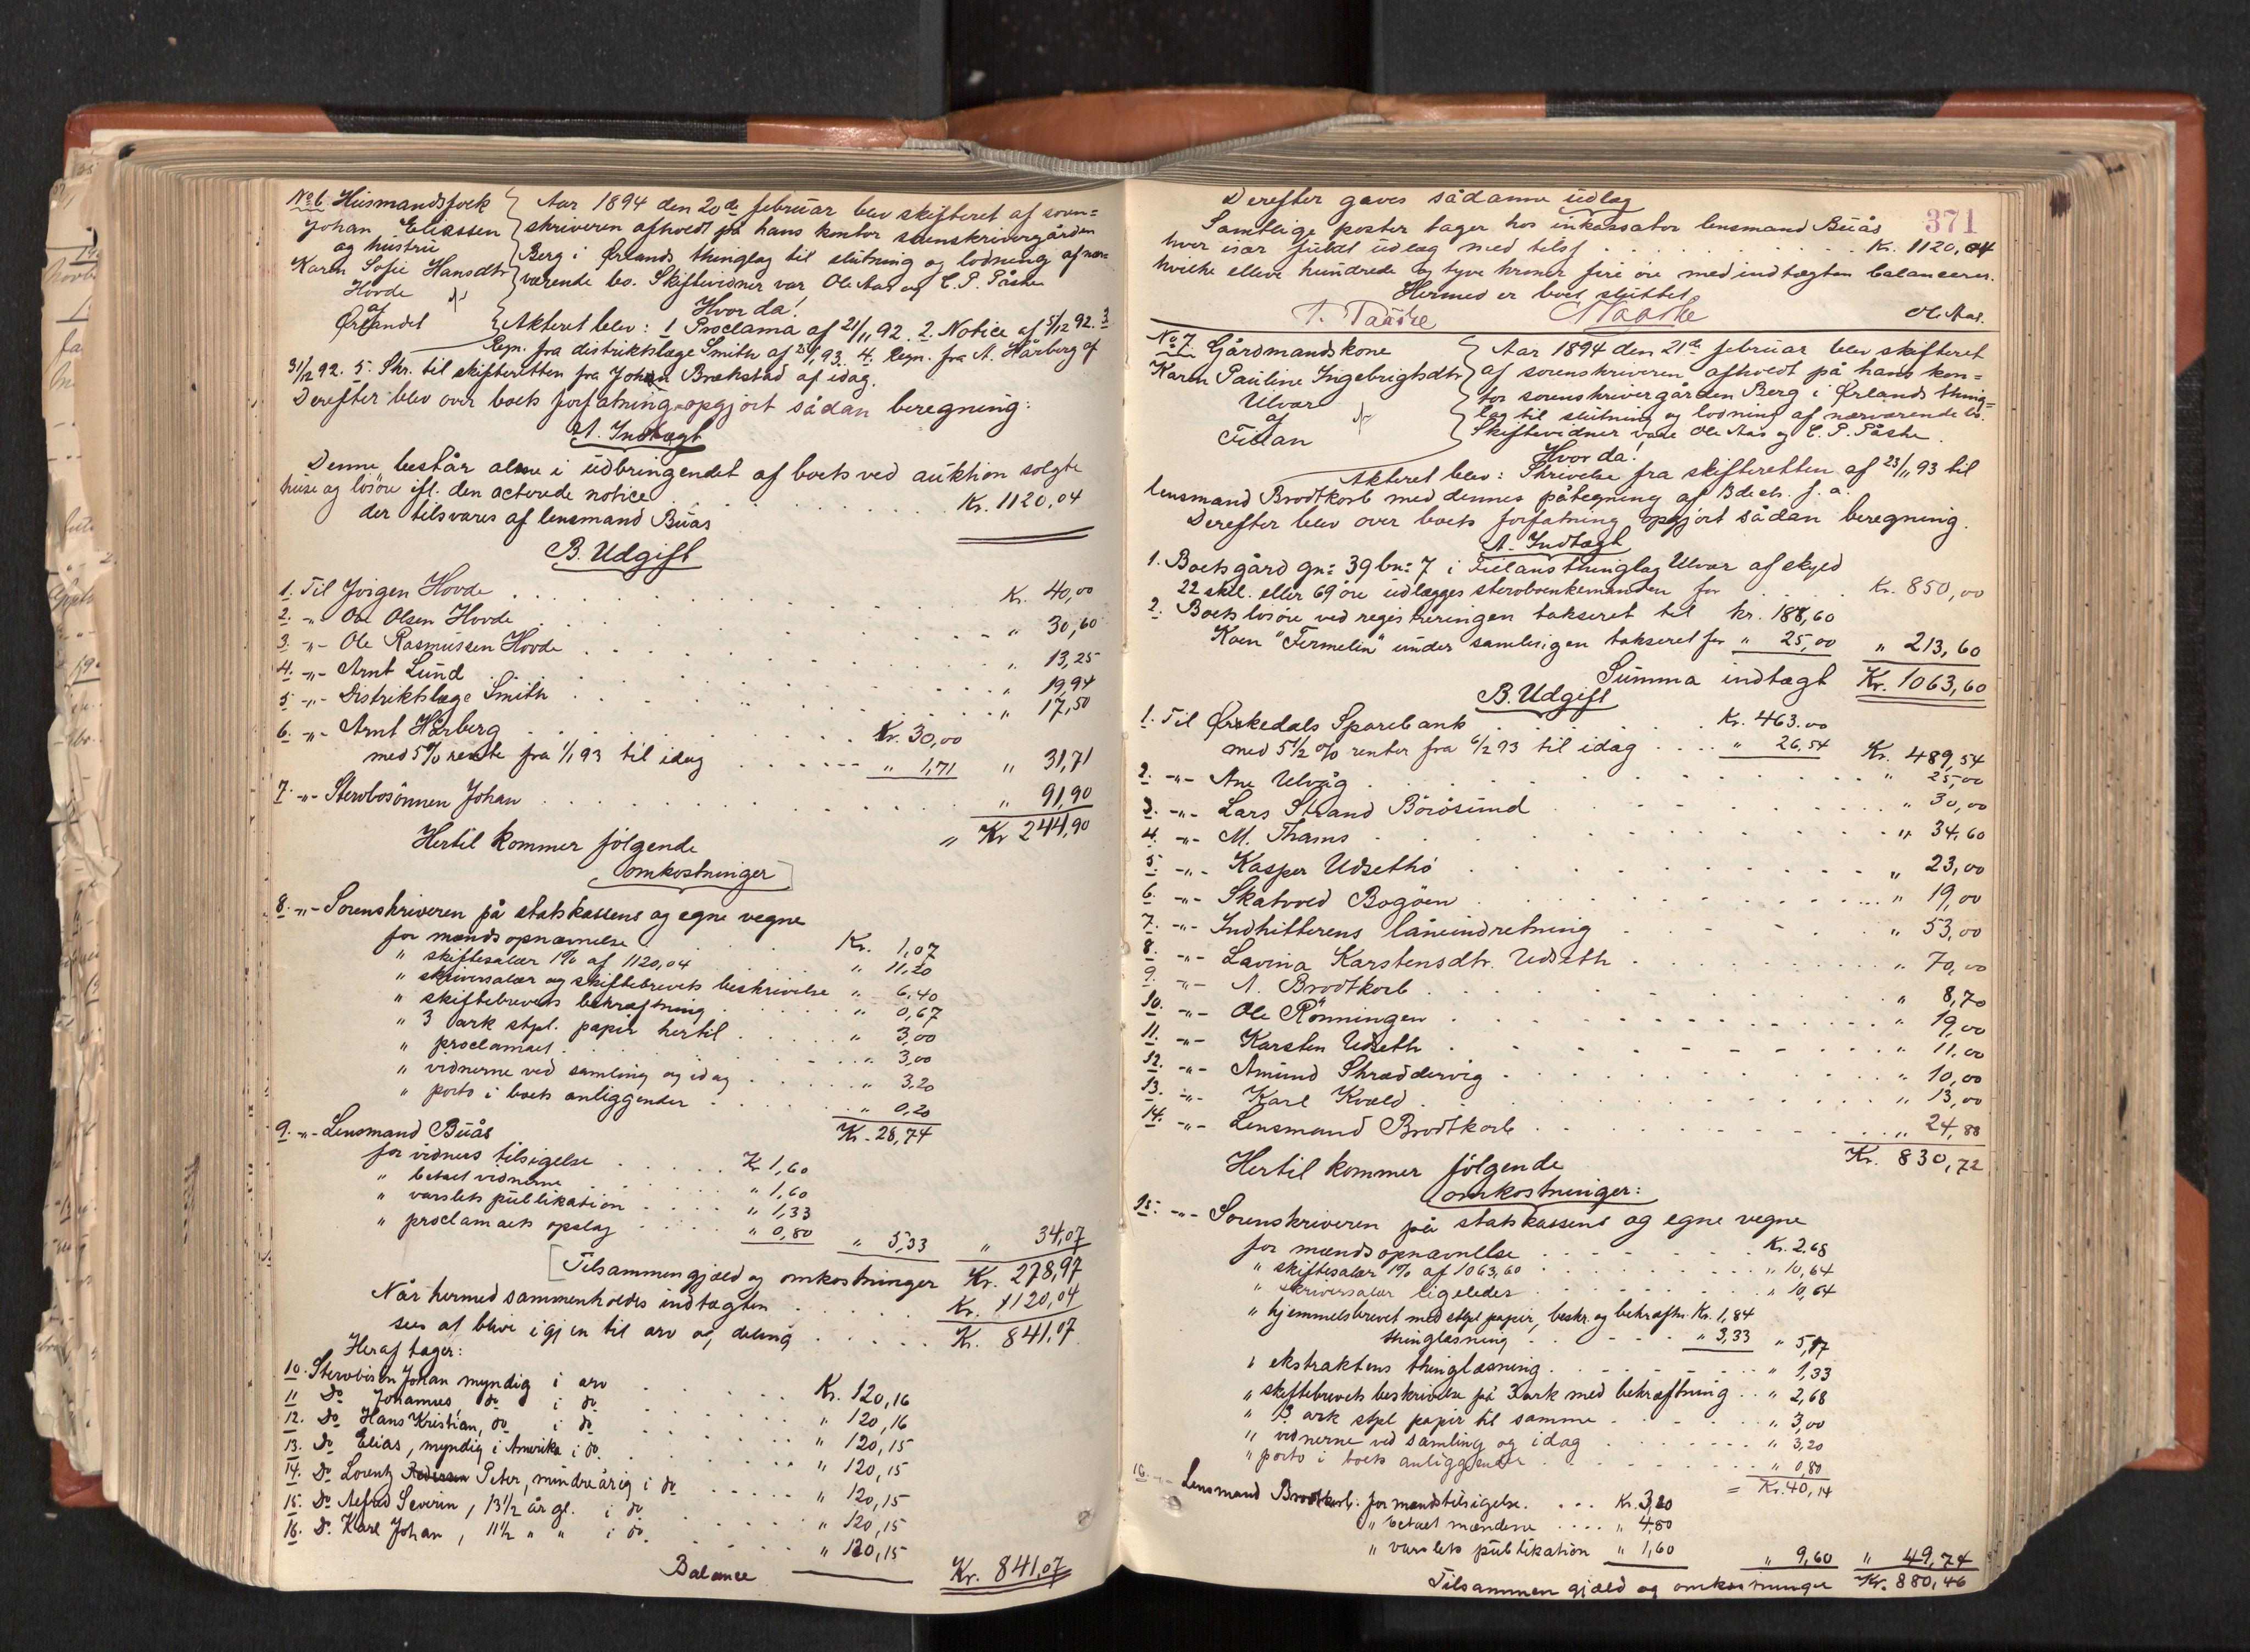 No 6. Husmandsfolk
Johan Eliassen
og hustru
Karen Sofie Hansdtr
Hovde
af
Ørlandet
Aar 1894 den 20de februar blev skifteret af soren=
skriveren afholdt på hans kontor sorenskrivergården
Berg i Ørlands thinglag til slutning og lodning af nær=
værende bo. Skiftevidner var Ole Aas og C. P. Påske
Hvor da!
Akteret blev: 1 Proclama af 21/11 92. 2. Notice af 5/12 92. 3
Regn. fra distriktslæge Smith af 2/1 93. 4. Regn. fra A. Hårberg af
31/12 92. 5. Skr. til skifteretten fra Johan Brækstad af idag.
Derefter blev over boets forfatning opgjort sådan beregning:
A. Indtægt
Denne består alene i udbringendet af boets ved auktion solgte
huse og løsøre ifl. den acterede notice
der tilsvares af lensmand Buås . . . Kr. 1120,04
B. Udgift
1. Til Jørgen Hovde . . . Kr. 40,00
2. -"- Ole Olsen Hovde . . . " 30,60
3. -"- Ole Rasmussen Hovde . . . " 13,25
4. -"- Arnt Lund . . . " 19,94
5 -"- Distriktslæge Smith . . . " 17,50
6. -"- Arnt Hårberg . . . Kr. 30,00
med 5% rente fra 1/1 93 til idag . . . " 1,71 " 31,71
7. -"- Stervbosønnen Johan . . . " 91,90
Hertil kommer følgende " Kr 244,90
omkostninger
8. -"- Sorenskriveren på statskassens og egne vegne
for mændsopnævnelse . . . Kr. 1,07
" skiftesalær 1% af 1120,04 . . . " 11,20
" skriversalær og skiftebrevets beskrivelse " 6,40
" skiftebrevets bekræftning . . . " 0,67
" 3 ark stpl. papir hertil . . . " 3,00
" proclamaet . . . " 3,00
" vidnerne ved samling og idag . . . " 3,20
" porto i boets anliggender . . . " 0,20
Kr. 28,74
9. -"- Lensmand Buås
for vidners tilsigelse . . . Kr 1,60
" betalt vidnerne . . . " 1,60
" varslets publikation . . . " 1,33
" proclamaets opslag . . . " 0,80 " 5,33 " 34,07
Tilsammen gjæld og omkostninger Kr. 278,97
Når hermed sammenholdes indtægten . . . Kr. 1120,04
sees at blive igjen til arv og deling . . . Kr. 841,07
Heraf tager:
10. Stervbosøn Johan myndig i arv . . . Kr. 120,16
11 Do Johannes, do i do . . . " 120,16
12. Do Hans Kristian, do i do . . . " 120,15
13. Do Elias, myndig i Amerika i do. . . . " 120,15
14. Do Lorentz Peter, mindreårig i do . . . " 120,15
15. Do Alfred Severin, 13 1/2 år gl. i do . . . " 120,15
16. Do Karl Johan, 11 1/2 " " i do. . . . " 120,15
Balance Kr. 841,07
371
Derefter gaves sådanne udlæg
Samtlige poster tager hos inkassator lensmand Buås
hver især fuldt udlæg med tils. . . . Kr. 1120,04
hvilke elleve hundrede og tyve kroner fire øre med indtægten balancerer.
Hermed er boet sluttet.
Ole Aas.
No 7. Gårdmandskone
Karen Pauline Ingebrigtsdtr
Ulvar
af
Fillan
Aar 1894 den 21de februar blev skifteret
af sorenskriveren afholdt på hans kon=
tor sorenskrivergården Berg i Ørlands thing=
lag til slutning og lodning af nærværende bo.
Skiftevidner vare Ole Aas og C. P. Påske.
Hvor da!
Akteret blev: Skrivelse fra skifteretten af 23/11 93 til
lensmand Brodtkorb med dennes påtegning af 3 decb. f. a.
Derefter blev over boets forfatning opgjort sådan beregning.
A. Indtægt
1. Boets gård gn: 39 bn: 7 i Fillans thinglag Ulvar af skyld
22 skil. eller 69 øre udlægges stervboenkemanden for . . . Kr. 850,00
2. Boets løsøre ved registreringen takseret til kr. 188,60
Koen "Fermelin" under samlingen takseret for " 25,00 " 213,60
Summa indtægt Kr. 1063,60
B. Udgift
1. Til Ørkedals Sparebank . . . Kr. 463.00
med 5 1/2 % renter fra 6/2 93 til idag . . . " 26,54 Kr. 489,54
2. -"- Ane Ulvåg . . . " 25,00
3. -"- Lars Strand Börösund . . . " 30,00
4. -"- M. Thams . . . " 34,60
5. -"- Kasper Udsethö . . . " 23,00
6. -"- Skatvold Bogöen . . . " 19,00
7. -"- Indhitterens låneindretning . . . " 53,00
8. -"- Lavina Karstensdtr. Udseth . . . " 70,00
9. -"- A. Brodtkorb . . . " 8,70
10. -"- Ole Rönningen . . . " 19,00
11. -"- Karsten Udseth . . . " 11,00
12. -"- Amund Skræddervig . . . " 10,00
13. -"- Karl Kvæld . . . " 13,00
14. -"- Lensmand Brodtkorb . . . " 24,88
Hertil kommer følgende Kr. 830,72
omkostninger:
15. -"- Sorenskriveren på statskassens og egne vegne
for mændsopnævnelse . . . Kr. 2,68
" skiftesalær 1% af 1063,60 . . . " 10,64
" skriversalær ligeledes . . . " 10,64
" hjemmelsbrevet med stpl papir, beskr. og bekræftn. Kr. 1,84
thinglæsning . . . " 3,33 " 5,17
" ekstraktens thinglæsning . . . " 1,33
" skiftebrevets beskrivelse på 3 ark med bekræftning . . " 2,68
" 3 ark stpl papir til samme . . . " 3,00
" vidnerne ved samling og idag . . . " 3,20
" porto i boets anliggender . . . " 0,80
= Kr. 40,14
16. -"- Lensmand Brodtkorb. for mændstilsigelse. . . . Kr. 3,20
" betalt mændene . . . " 4,80
" varslets publikation " 1,60 " 9,60 " 49,74
Tilsammen gjæld og omkostninger Kr. 880,46